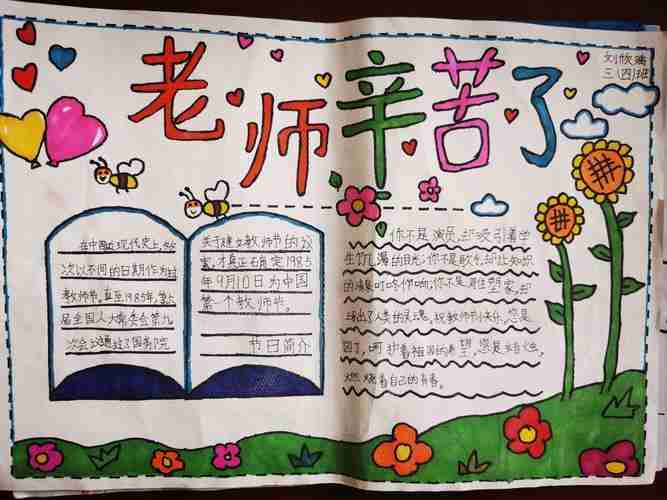 老师辛苦了
刘欣
三(四)班
在中国近现代史上,
次以不同的日期作为过
教师节,直至1985年,第六
届全国人大常委会第九
次会议通过了国务院
关于建立教师节的议
案,才真正确定1985
年9月10日为中国
第一个教师节。
节日简介
你不是演员,却吸引着学
生饥渴的目光;你不是歌手,却让知识
的清泉叮咚作响;你不是雕塑家,却
了人类的灵魂,祝教师节快乐,您是
园丁,呵护着祖国的希望,您是红烛,
燃烧着自己的青春。